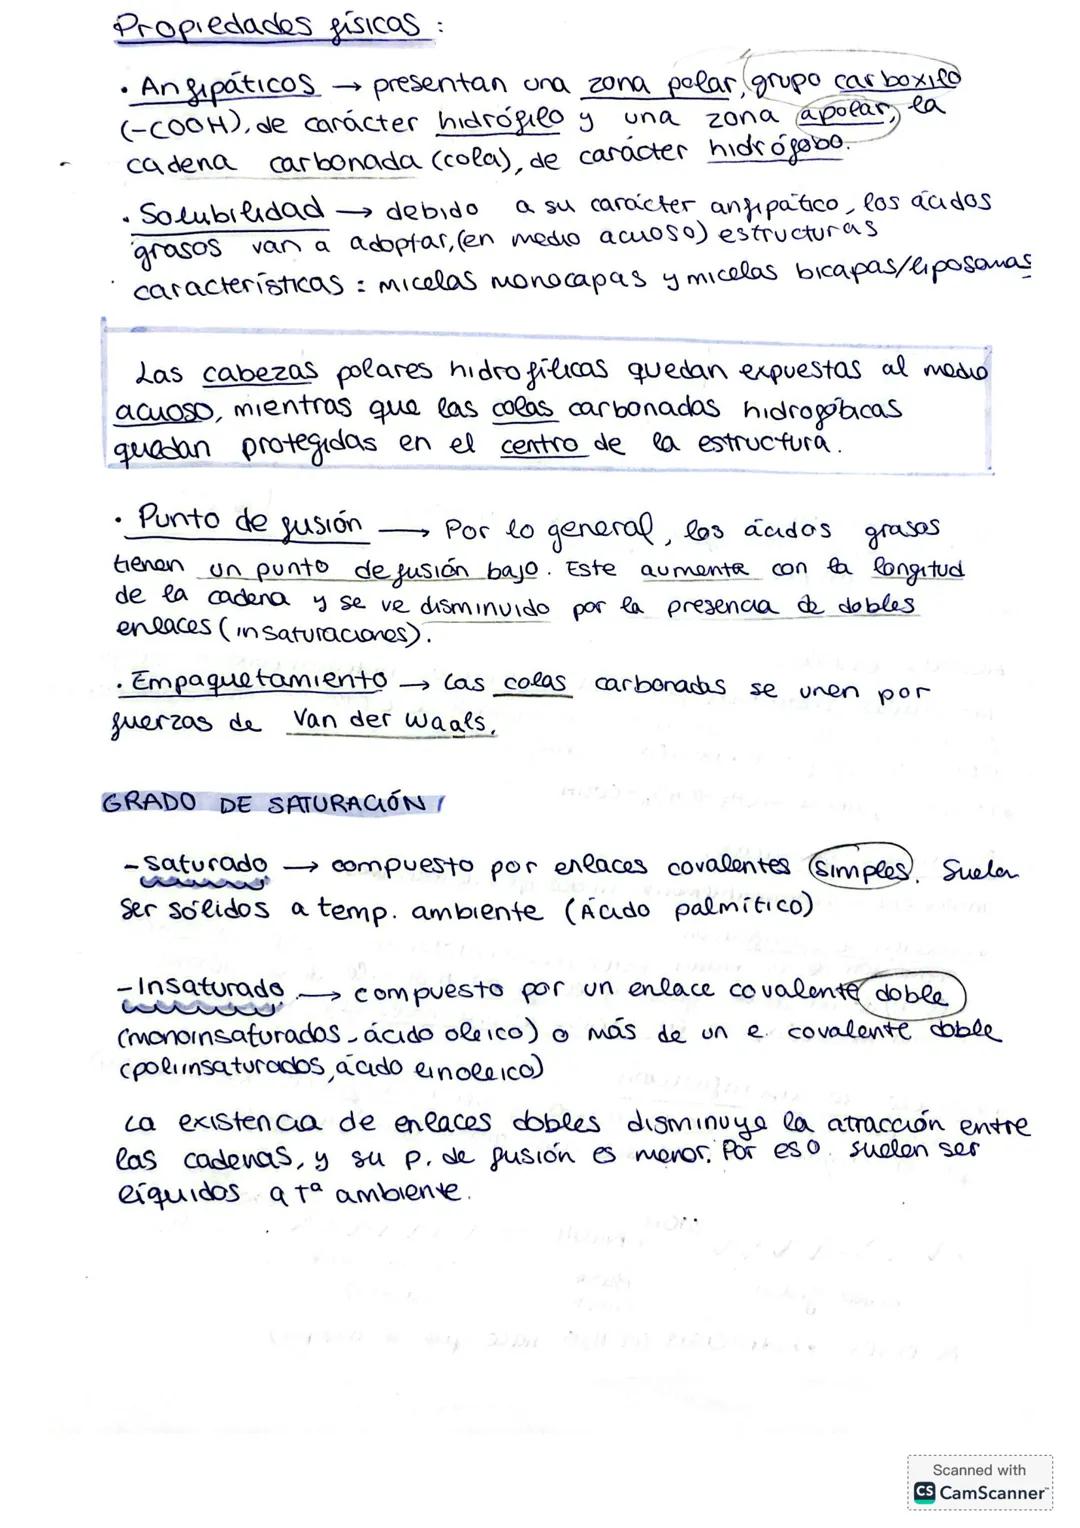 Propiedades físicas:
· Anfipáticos → presentan una zona polar, grupo carboxilo
(-COOH), de carácter hidrófilo y una zona apolar, la
cadena carbonada (cola), de carácter hidrófobo.
· Solubilidad → debido a su carácter anfipático, los ácidos
grasos van a adoptar, (en medio acuoso) estructuras
características: micelas monocapas y micelas bicapas/liposomas
Las cabezas polares hidrofílicas quedan expuestas al medio
acuoso, mientras que las colas carbonadas hidrofóbicas
quedan protegidas en el centro de la estructura.
· Punto de fusión → Por lo general, los ácidos grasos
tienen un punto de fusión bajo. Este aumenta con la longitud
de la cadena y se ve disminuido por la presencia de dobles
enlaces (insaturaciones).
· Empaquetamiento → Las colas carbonadas se unen por
fuerzas de Van der Waals.
GRADO DE SATURACIÓN
- Saturado → compuesto por enlaces covalentes simples. Suelen
ser sólidos a temp. ambiente (Ácido palmítico)
- Insaturado → compuesto por un enlace covalente doble
(monoinsaturados - ácido oleico) o más de un e. covalente doble
(poliinsaturados, ácido linoleico)
La existencia de enlaces dobles disminuye la atracción entre
las cadenas, y su p. de fusión es menor. Por eso suelen ser
líquidos a tª ambiente.
Scanned with
CS CamScanner